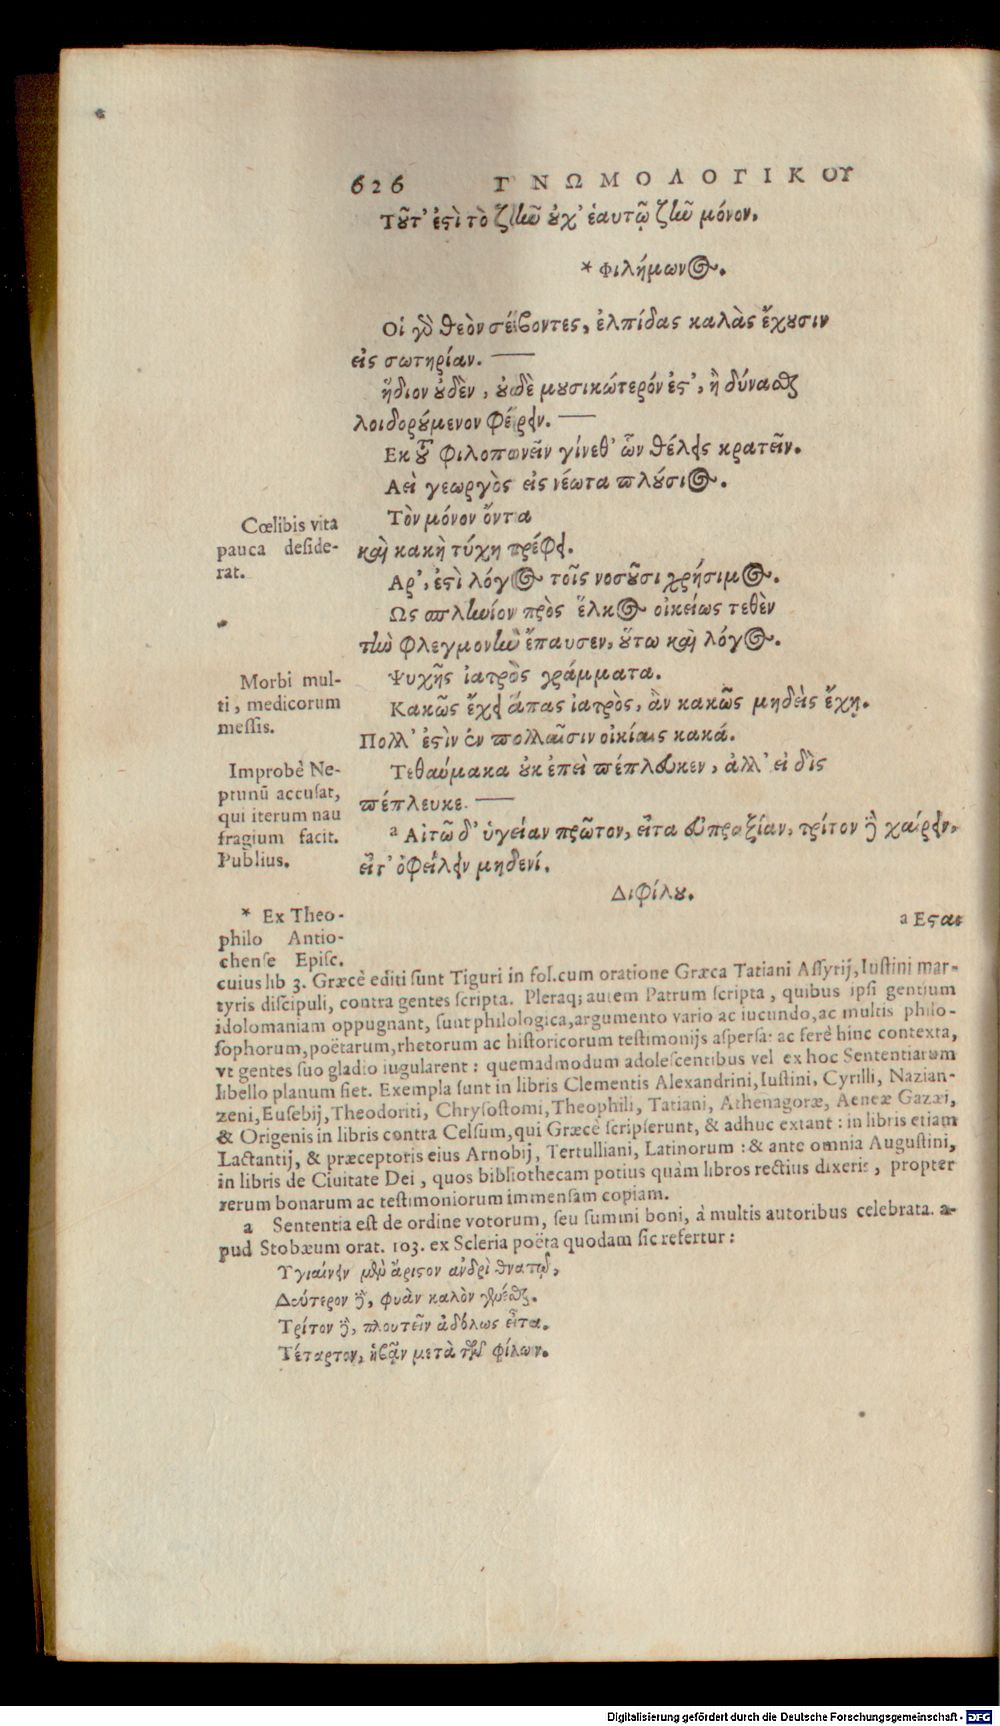 626 ΓΝΩΜΟΛΟΓΙΚΟΥ
Τοῦτ' ἐστὶ τὸ ζῆν οὐχ' ἑαυτῷ ζῆν μόνον.
* Φιλήμωνος.
Οἱ γὸ θεὸν σέβοντες, ἐλπίδας καλὰς ἔχουσιν
εἰς σωτηρίαν. —
ἥδιον οὐδὲν, οὐδὲ μουσικώτερόν ἐστ', ἢ δύνασθαι
λοιδορούμενον φέρειν. —
Εκ τοῦ φιλοπονεῖν γίνεθ' ὧν θέλεις κρατεῖν.
Αεὶ γεωργὸς εἰς νέωτα πλούσιος.
Τὸν μόνον ὄντα
Cœlibis vita
pauca deside-
rat.
καὶ κακὴ τύχη τρέφει.
Αρ', ἐστὶ λόγος τοῖς νοσοῦσι χρήσιμος.
Ως σπληνίον πρὸς ἕλκος οἰκείως τεθὲν
τὴν φλεγμονὴν ἔπαυσεν, οὕτω καὶ λόγος.
Ψυχῆς ἰατρὸς γράμματα.
Morbi mul-
ti, medicorum
messis.
Κακῶς ἔχει ἅπας ἰατρὸς, ἂν κακῶς μηδεὶς ἔχῃ.
Πολλ' ἐστὶν ἐν πολλαῖσιν οἰκίαις κακά.
Improbè Ne-
ptunū accusat,
qui iterum nau
fragium facit.
Publius.
Τεθαύμακα οὐκ ἐπεὶ πέπλευκεν, ἀλλ' εἰ δὶς
πέπλευκε. —
a Αἰτῶ δ' ὑγείαν πρῶτον, εἶτα εὐπραξίαν, τρίτον δὲ χαίρειν,
εἶτ' ὀφείλειν μηδενί.
Διφίλου.
a Εσται
* Ex Theo-
philo Antio-
chense Episc.
cuius lib 3. Græcè editi sunt Tiguri in fol. cum oratione Græca Tatiani Assyrij, Iustini mar-
tyris discipuli, contra gentes scripta. Pleraq; autem Patrum scripta, quibus ipsi gentium
idolomaniam oppugnant, sunt philologica, argumento vario ac iucundo, ac multis philo-
sophorum, poëtarum, rhetorum ac historicorum testimonijs aspersa: ac ferè hinc contexta,
vt gentes suo gladio iugularent: quemadmodum adolescentibus vel ex hoc Sententiarum
libello planum fiet. Exempla sunt in libris Clementis Alexandrini, Iustini, Cyrilli, Nazian-
zeni, Eusebij, Theodoriti, Chrysostomi, Theophili, Tatiani, Athenagoræ, Aeneæ Gazæi,
& Origenis in libris contra Celsum, qui Græcè scripserunt, & adhuc extant: in libris etiam
Lactantij, & præceptoris eius Arnobij, Tertulliani, Latinorum: & ante omnia Augustini,
in libris de Ciuitate Dei, quos bibliothecam potius quàm libros rectius dixeris, propter
rerum bonarum ac testimoniorum immensam copiam.
a Sententia est de ordine votorum, seu summi boni, à multis autoribus celebrata. a-
pud Stobæum orat. 103. ex Scleria poëta quodam sic refertur:
Υγιαίνειν μὲν ἄριστον ἀνδρὶ θνατῷ,
Δεύτερον δὲ, φυὰν καλὸν γενέσθαι.
Τρίτον δὲ, πλουτεῖν ἀδόλως εἶτα.
Τέταρτον, ἡβᾷν μετὰ τῶν φίλων.
Digitalisierung gefördert durch die Deutsche Forschungsgemeinschaft - DFG